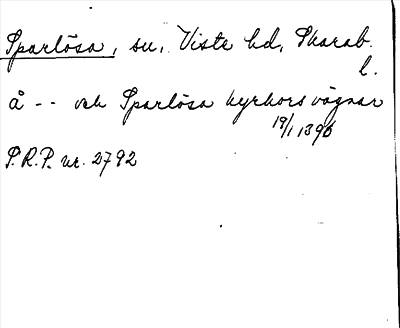 Sparlösa, sn, Viste hd, Skarab.
l.
å -- och Sparlösa kyrkors vägnar
19/1 1396
P.R.P. nr. 2792